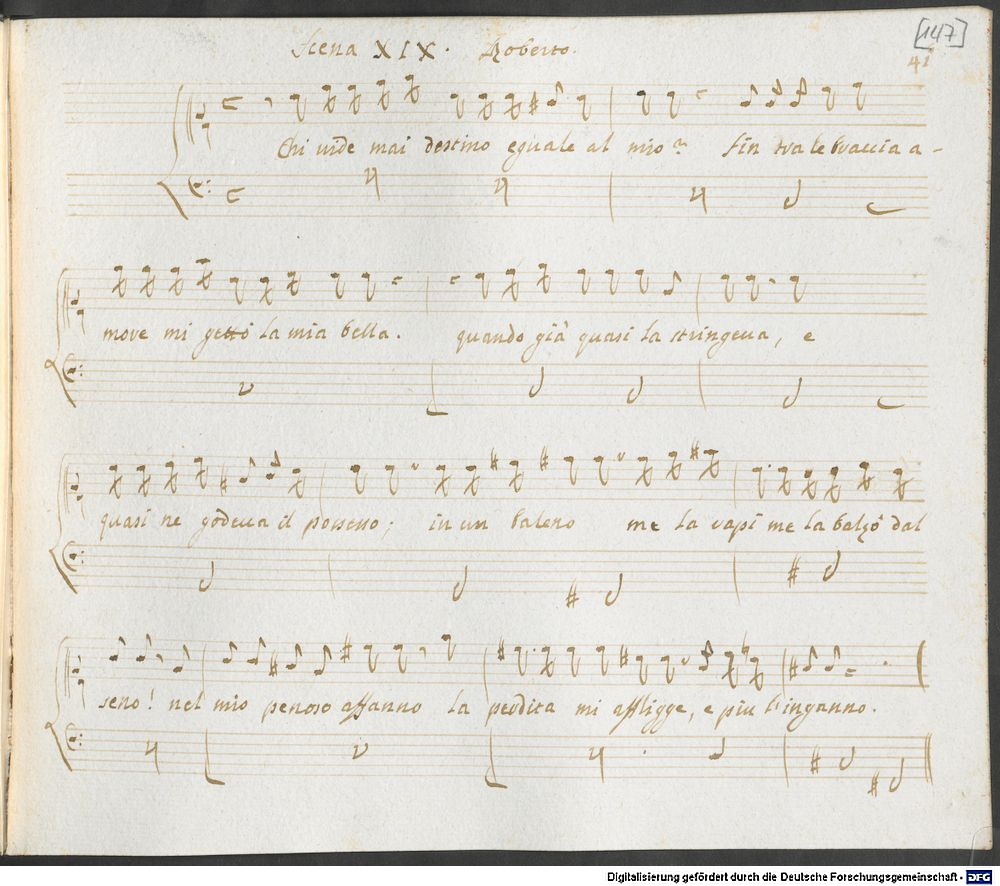 [147]
41
Scena XIX. Roberto.
Chi vide mai destino eguale al mio? fin tra le braccia a-
move mi gettò la mia bella. quando già quasi la stringeva, e
quasi ne godeva il possesso; in un baleno me la rapì me la balzò dal
seno! nel mio penoso affanno la perdita mi affligge, e piu l'inganno.
Digitalisierung gefördert durch die Deutsche Forschungsgemeinschaft - DFG